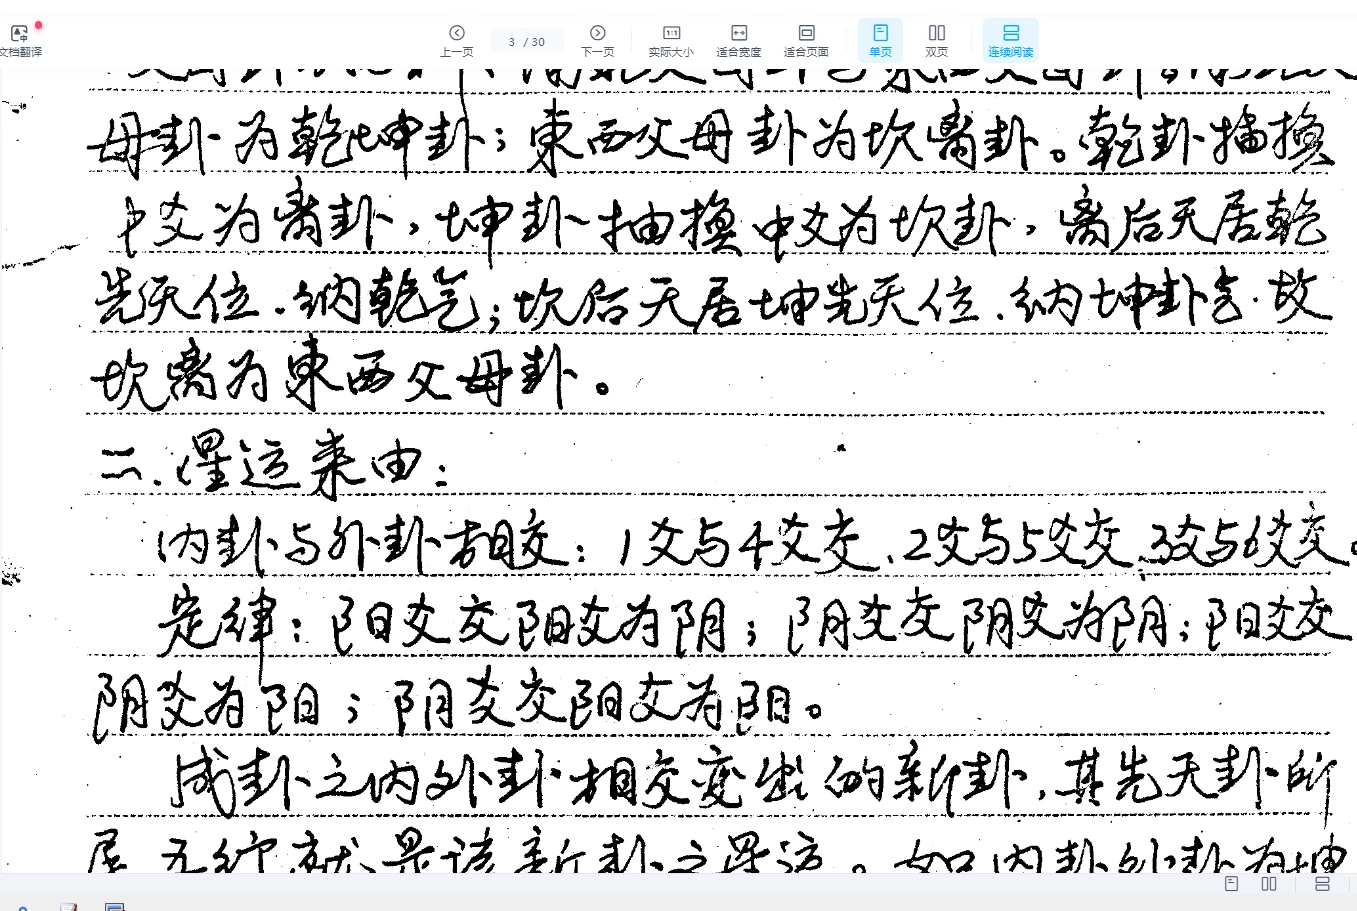 文档翻译
上一页
3 / 30
下一页
1:1
实际大小
适合宽度
适合页面
单页
双页
连续阅读
母卦为乾坤卦；東西父母卦为坎离卦。乾卦抽换
中爻为离卦，坤卦抽换中爻为坎卦，离后天居乾
先天位、纳乾气；坎后天居坤先天位、纳坤卦气. 故
坎离为東西父母卦。
二、星运来由：
内卦与外卦相交：1爻与4爻交、2爻与5爻交、3爻与6爻交。
定律：阳爻交阳爻为阴；阴爻交阴爻为阴；阳爻交
阴爻为阳；阴爻交阳爻为阳。
成卦之内外卦相交变出的新卦，其先天卦所
居五行就是该新卦之星运。如内卦外卦为坤